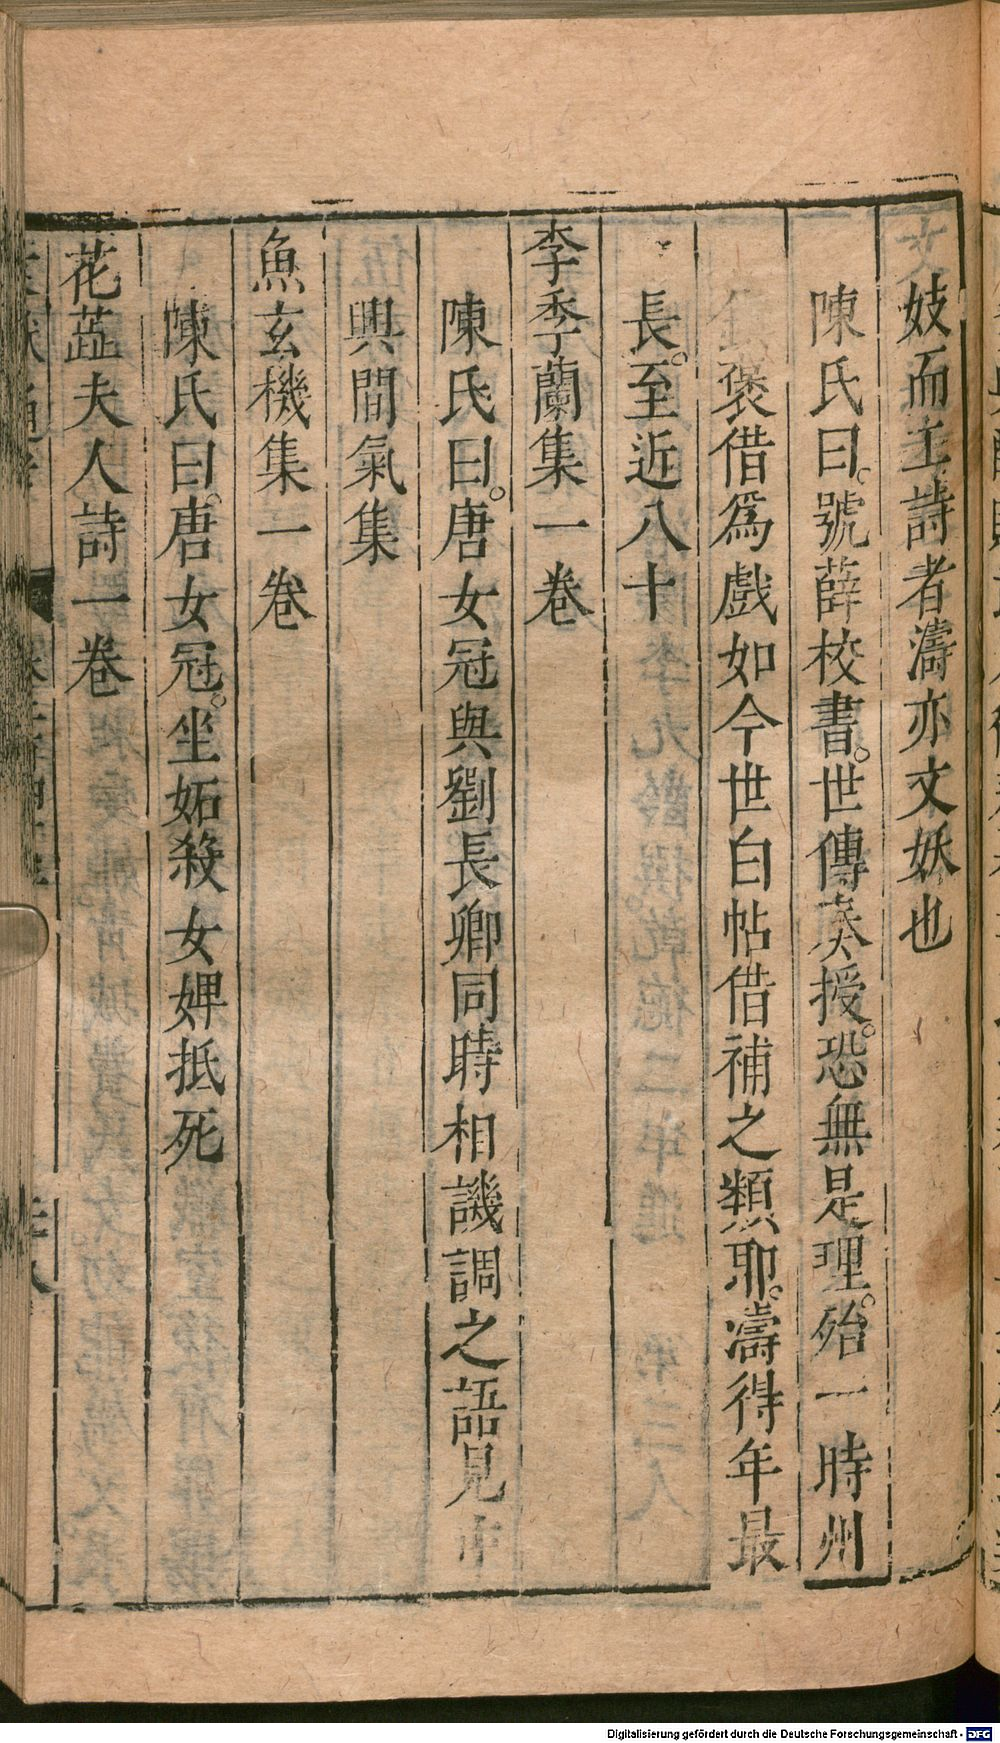 妓而工詩者濤亦文妖也
陳氏曰號薛校書世傳奏授恐無是理殆一時州
鎮褒借爲戲如今世白帖借補之類耶濤得年最
長至近八十
李季蘭集一卷
陳氏曰唐女冠與劉長卿同時相譏調之語見中
興間氣集
魚玄機集一卷
陳氏曰唐女冠坐妬殺女婢抵死
花蕋夫人詩一卷
Digitalisierung gefördert durch die Deutsche Forschungsgemeinschaft - DFG